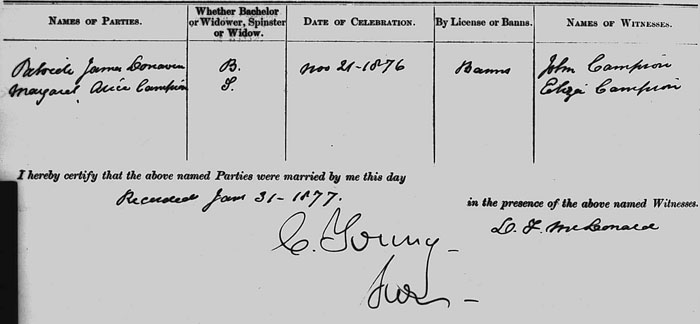 NAMES OF PARTIES. Whether Bachelor or Widower, Spinster or Widow. DATE OF CELEBRATION. By License or Banns. NAMES OF WITNESSES.
Patrick James Donaven B. Nov 21-1876 Banns John Campion
Margaret Alice Campion S. Eliza Campion
I hereby certify that the above named Parties were married by me this day
Recorded Jan 31-1877. in the presence of the above named Witnesses.
C. Young D. F. McDonald